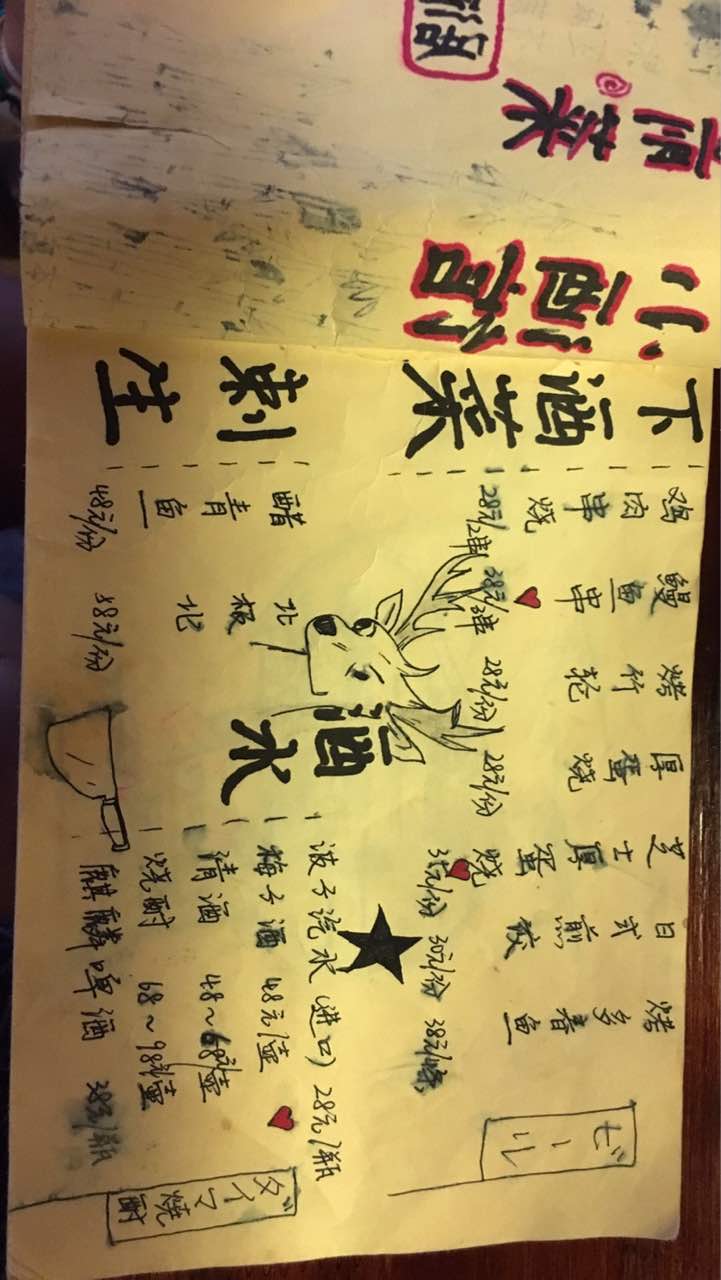 小酒馆
下酒菜
鸡肉串烧 28元/2串
鳗鱼串 38元/2串
烤竹轮 28元/份
厚蛋烧 28元/份
芝士厚蛋烧 35元/份
日式煎饺 30元/份
烤多春鱼 38元/4条
ビール
刺生
醋青鱼 48元/份
北极北 58元/份
酒水
波子汽水(进口) 28元/瓶
梅子酒 48元/壶
清酒 48~68元/壶
烧酎 68~98元/壶
麒麟啤酒 38元/瓶
焼酎